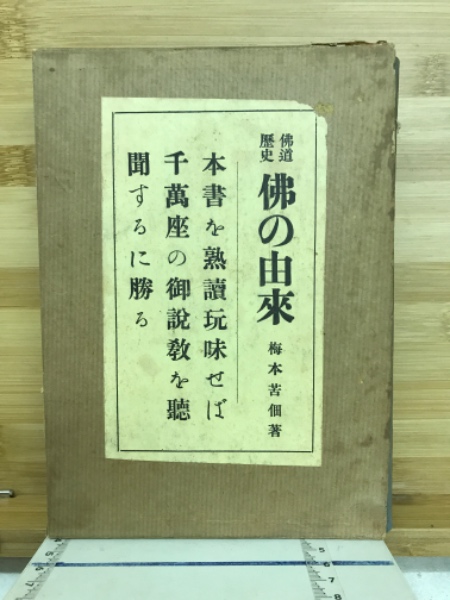 佛道
歷史
佛の由來
梅本苦佃著
本書を熟讀玩味せば
千萬座の御說敎を聽
聞するに勝る
5
6
7
8